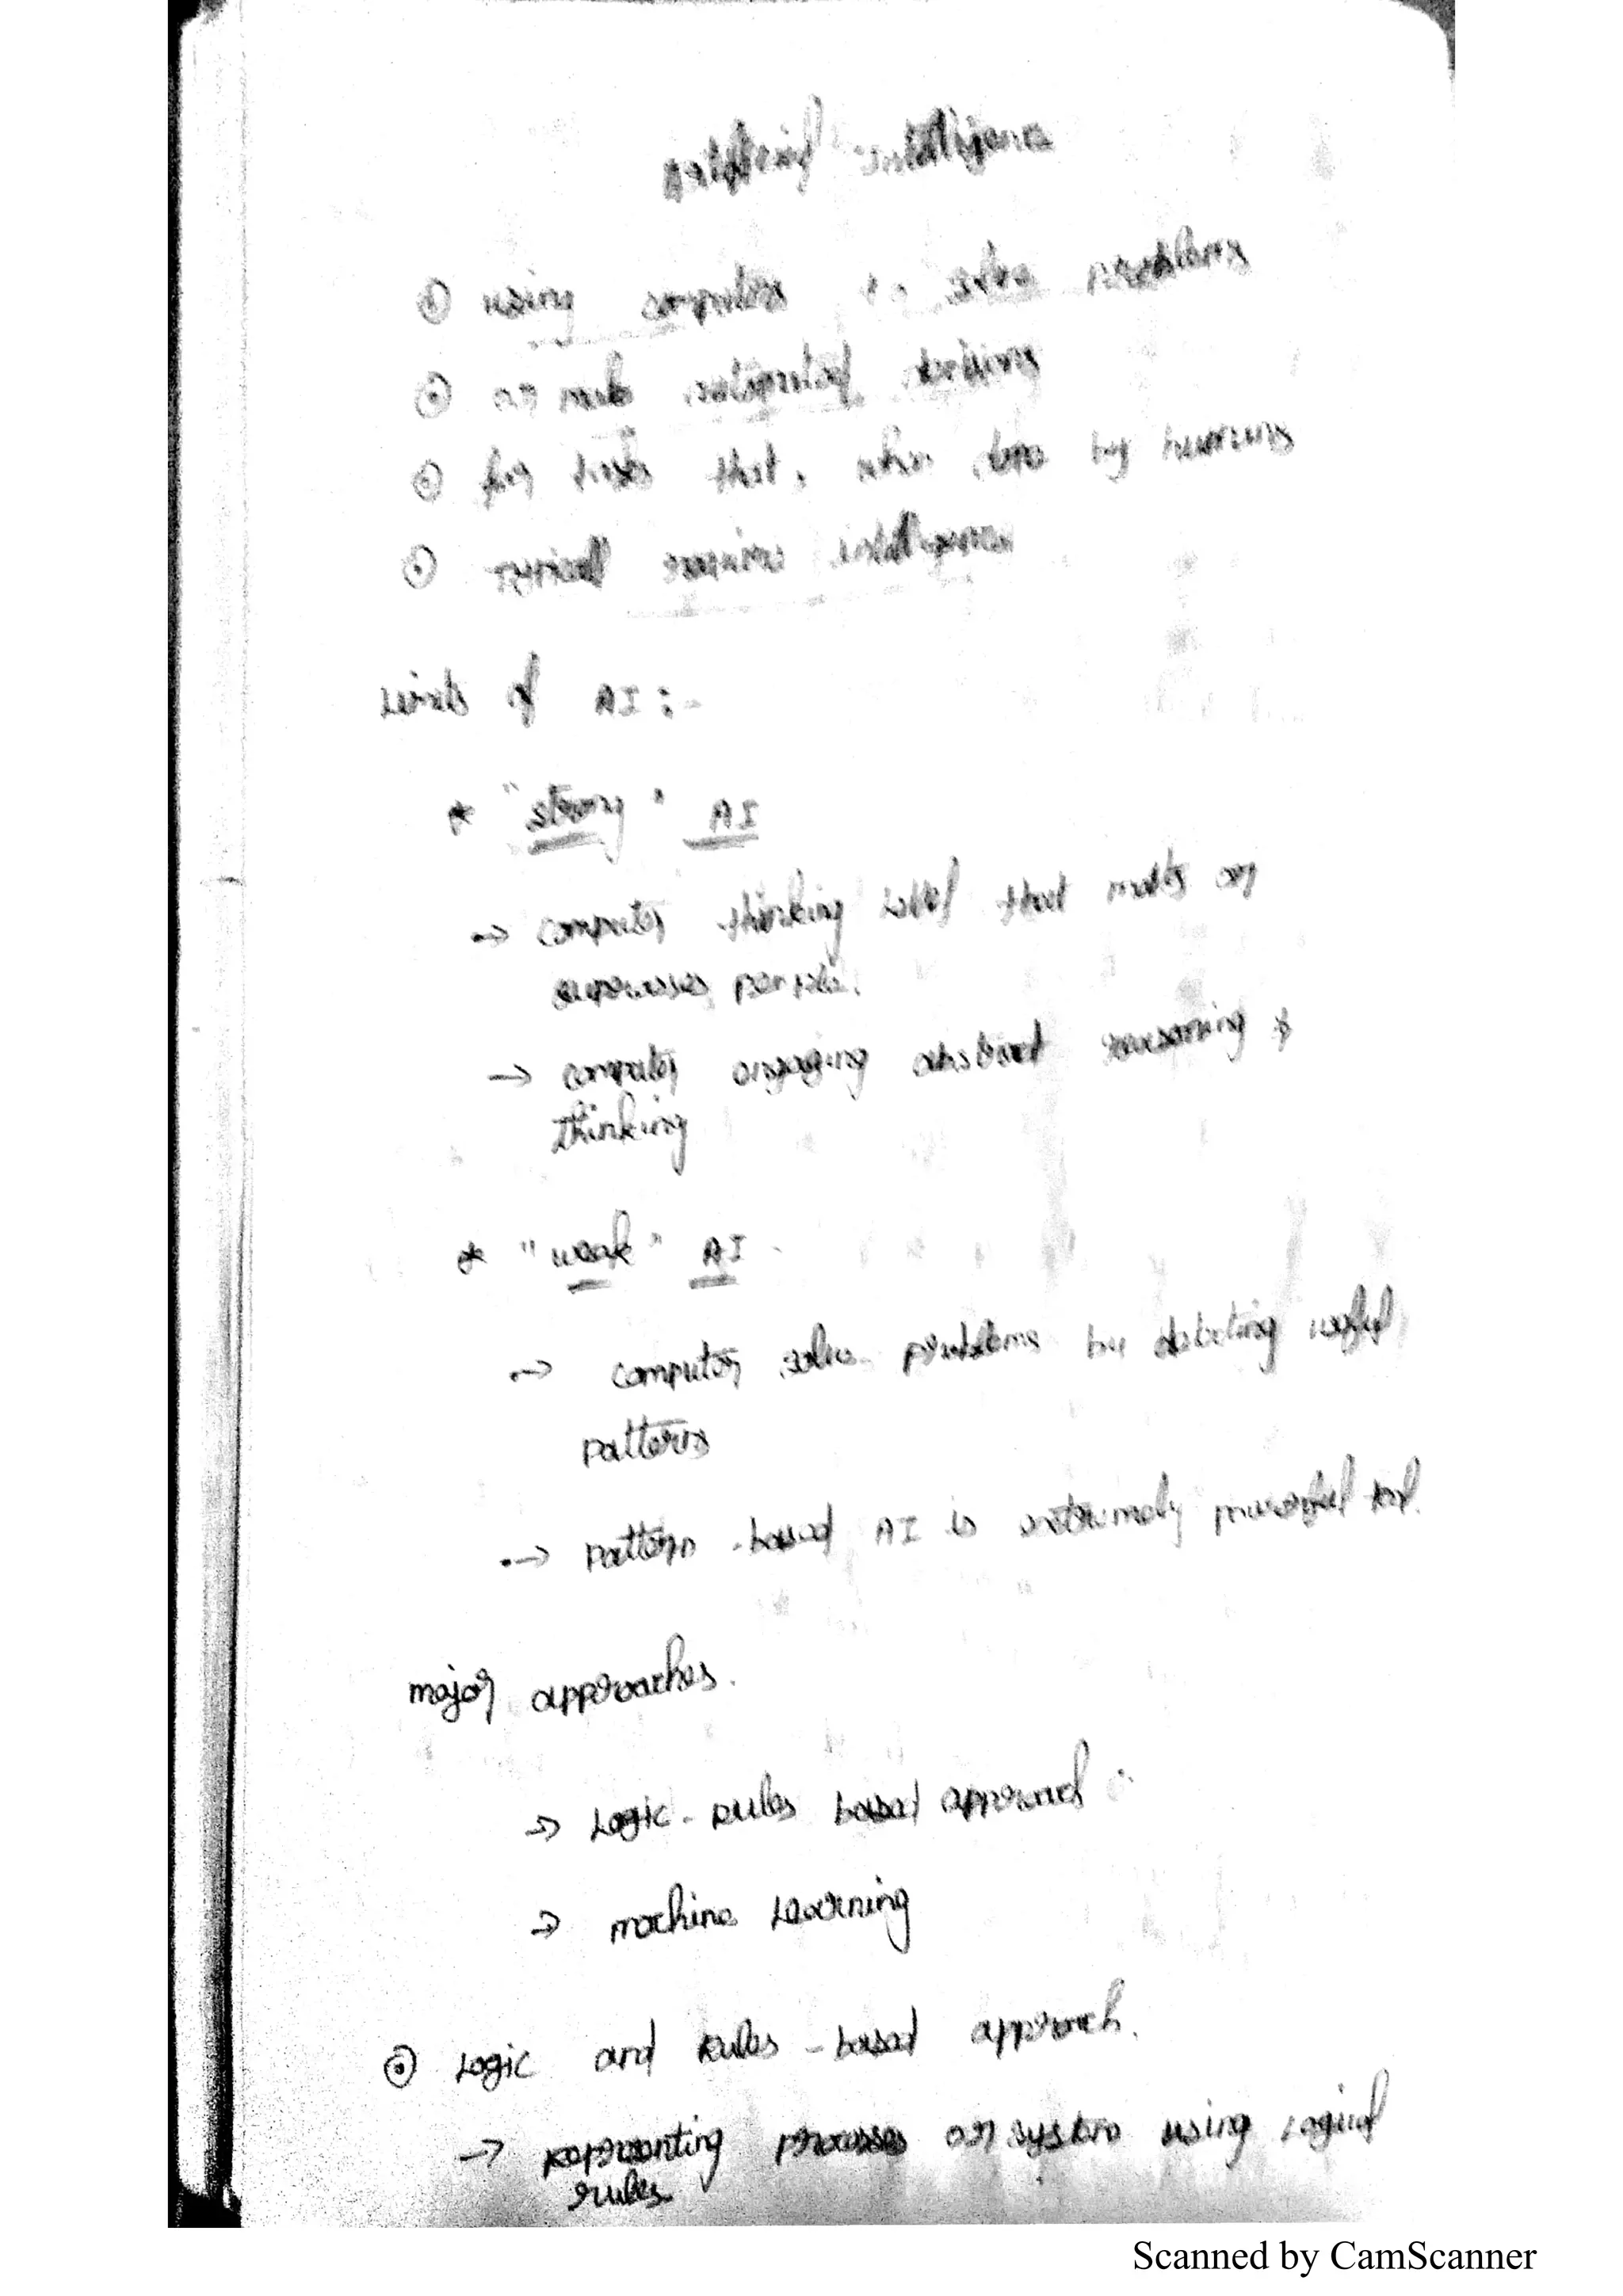 Artificial Intelligence
⊙ using computers to solve problems
⊙ or make automated decisions
⊙ for tasks that, when done by humans
⊙ typicall requires intelligence
Limits of AI :-
* "strong" AI
→ computer thinking level that meets or
surpasses people.
→ computer engaging abstract reasoning &
thinking
* "weak" AI
→ computer solve problems by detecting useful
patterns
→ pattern-based AI is extremely powerful tool.
major approaches.
→ Logic-Rules based approach
→ machine Learning
⊙ Logic and Rules-based approach.
→ Representing processes or system using logical
rules
Scanned by CamScanner